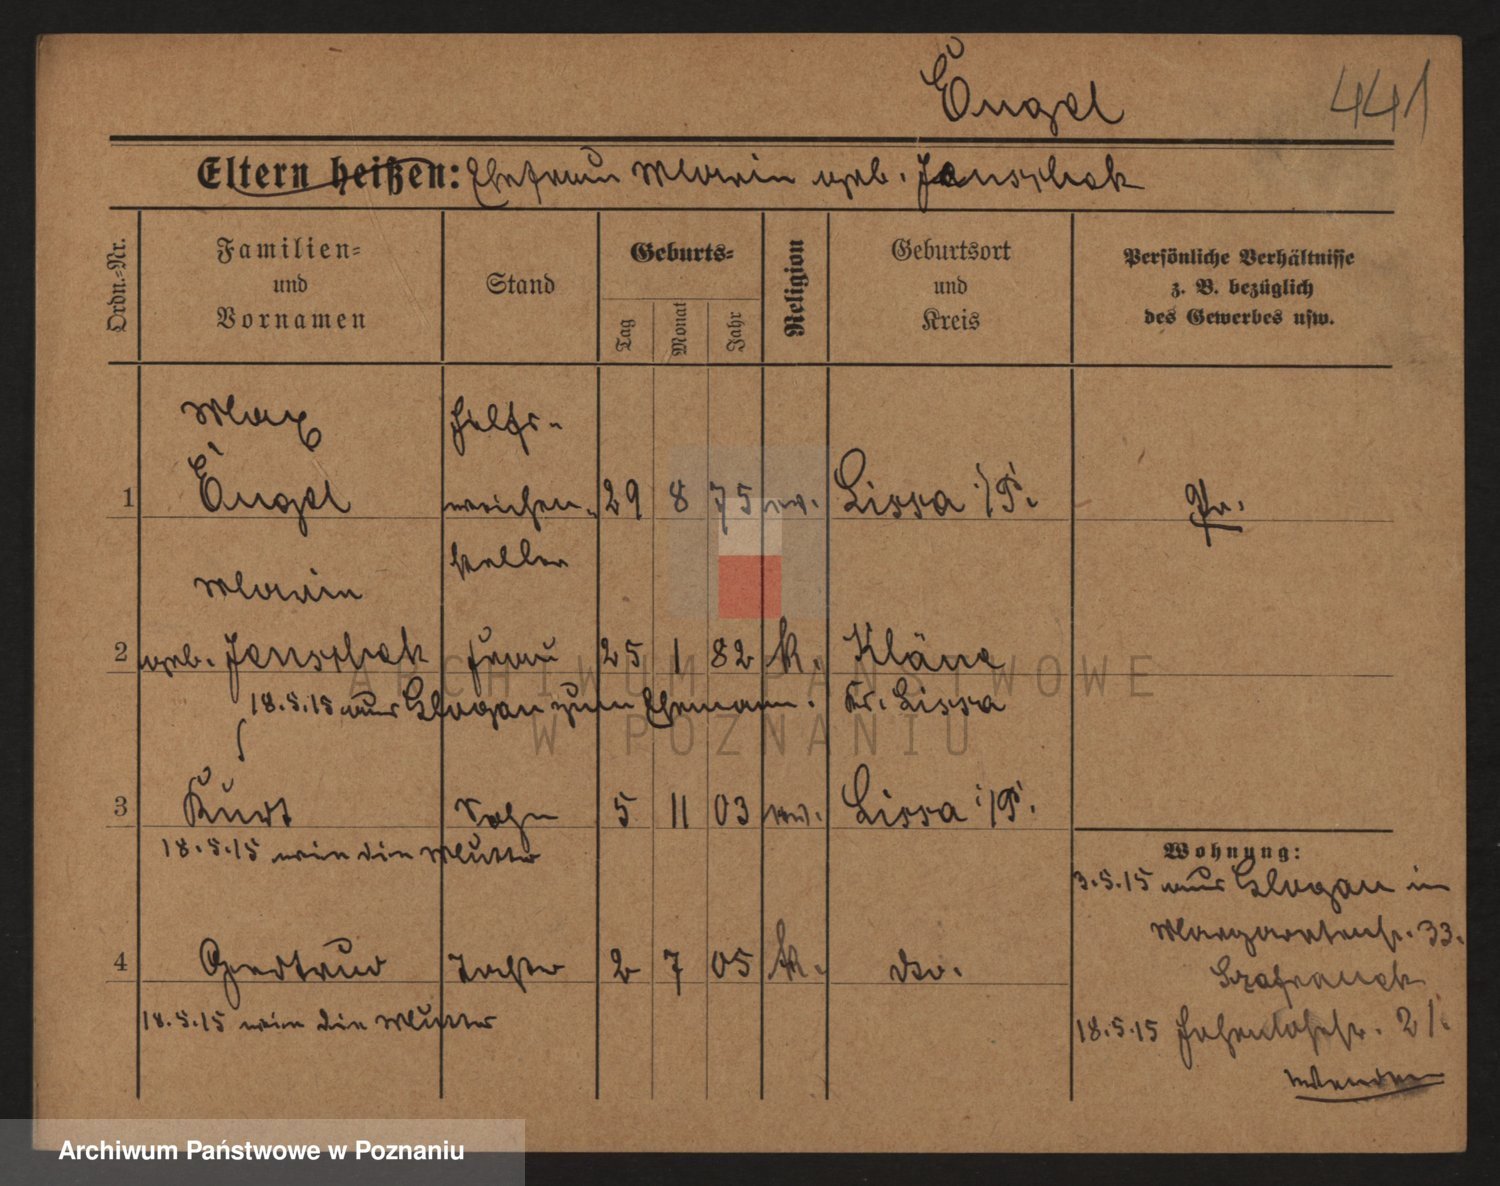 Engel
441
Eltern heißen: Ehefrau Marie geb. Janschek
Ordn.-Nr.
Familien-
und
Vornamen
Stand
Geburts-
Tag
Monat
Jahr
Religion
Geburtsort
und
Kreis
Persönliche Verhältnisse
z. B. bezüglich
des Gewerbes usw.
Max Hilfs-
1 Engel weichen- 29 8 75 ev. Lissa i/P. Pr.
steller
Marie
2 geb. Janschek Frau 25 1 82 k. Kläne
18.5.15 aus Glogau zum Ehemann. Kr. Lissa
3 Kurt Sohn 5 11 03 ev. Lissa i/P.
18.5.15 wie die Mutter
4 Gertrud Tochter 2 7 05 k. do.
18.5.15 wie die Mutter
Wohnung:
3.5.15 aus Glogau in
Margaretenstr. 33.
Szafranek
18.5.15 Hohenlohestr. 2
wenden
ARCHIWUM PAŃSTWOWE
W POZNANIU
Archiwum Państwowe w Poznaniu